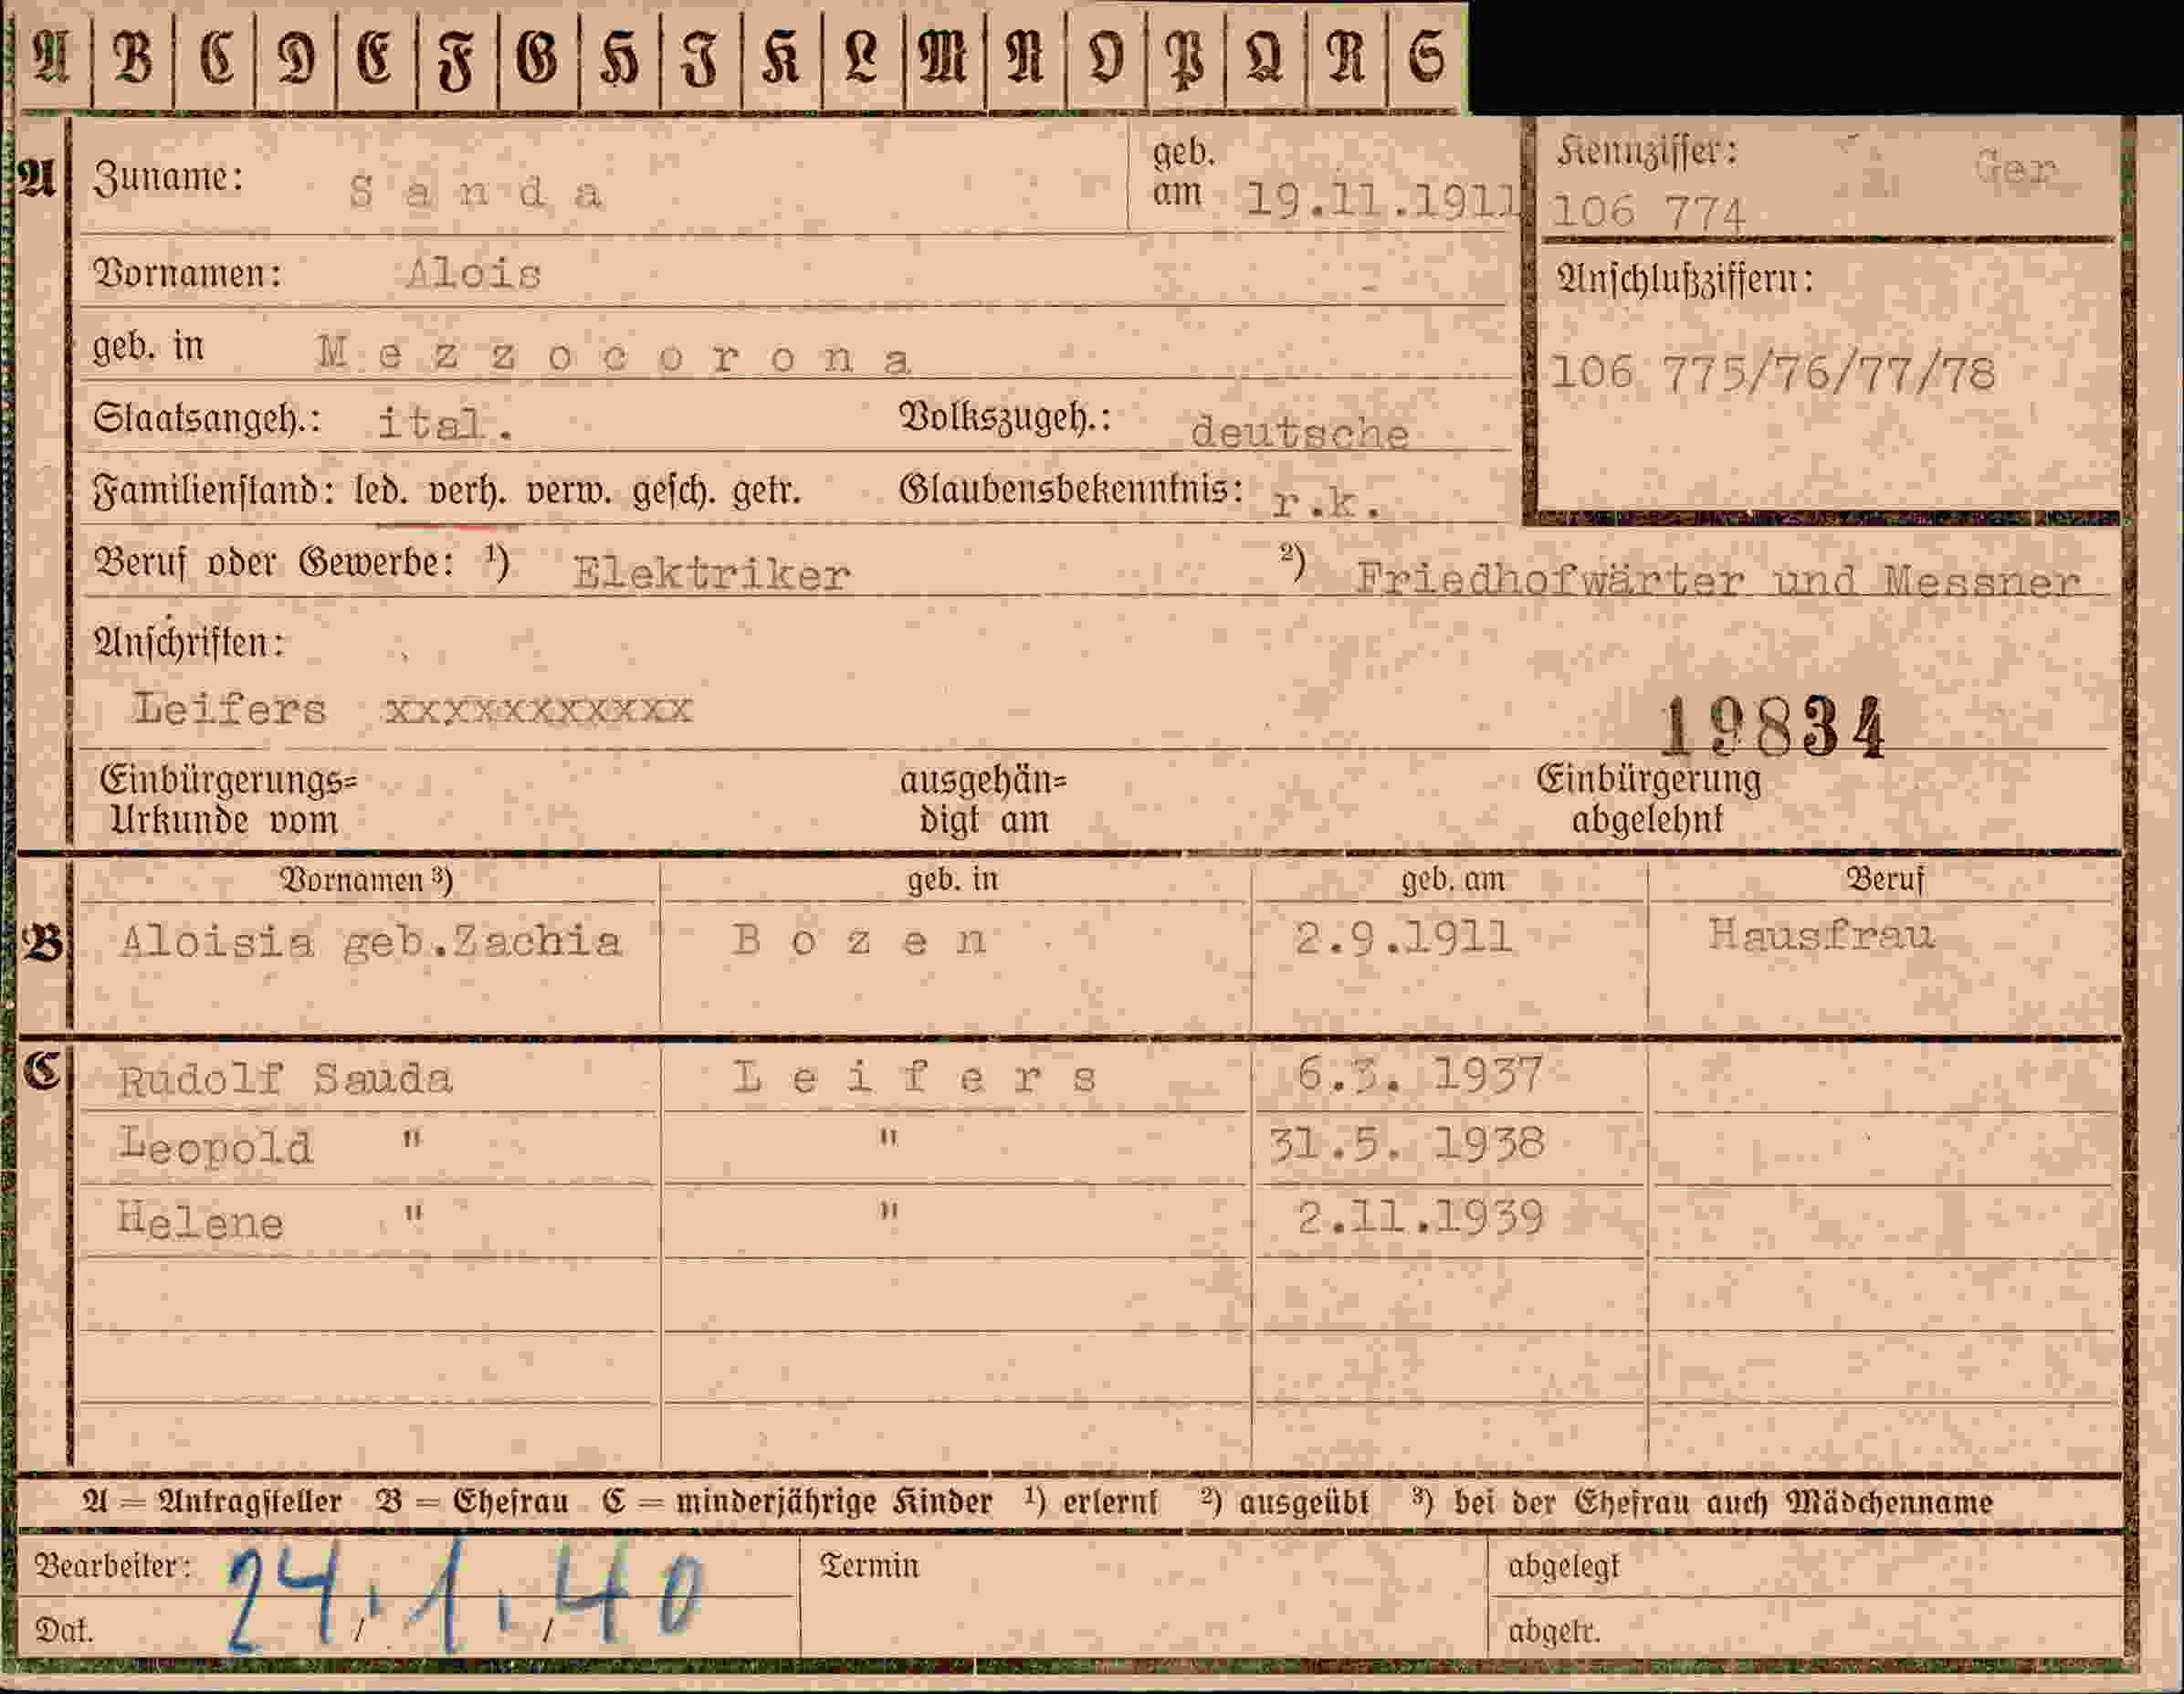 A B C D E F G H I K L M N O P Q R S
A Zuname: Sanda geb. am 19.11.1911
Kennziffer: Ger
106 774
Vornamen: Alois
Anschlußziffern:
geb. in Mezzocorona
106 775/76/77/78
Staatsangeh.: ital. Volkszugeh.: deutsche
Familienstand: led. verh. verw. gesch. getr. Glaubensbekenntnis: r.k.
Beruf oder Gewerbe: ¹) Elektriker ²) Friedhofwärter und Messner
Anschriften:
Leifers xxxxxxxxxxx
19834
Einbürgerungs= Urkunde vom ausgehän= digt am Einbürgerung abgelehnt
Vornamen ³) geb. in geb. am Beruf
B Aloisia geb.Zachia Bozen 2.9.1911 Hausfrau
C Rudolf Sauda Leifers 6.3. 1937
Leopold " " 31.5. 1938
Helene " " 2.11.1939
A = Antragsteller B = Ehefrau C = minderjährige Kinder ¹) erlernt ²) ausgeübt ³) bei der Ehefrau auch Mädchenname
Bearbeiter: 24.1.40 Termin abgelegt
Dat. / / abgetr.